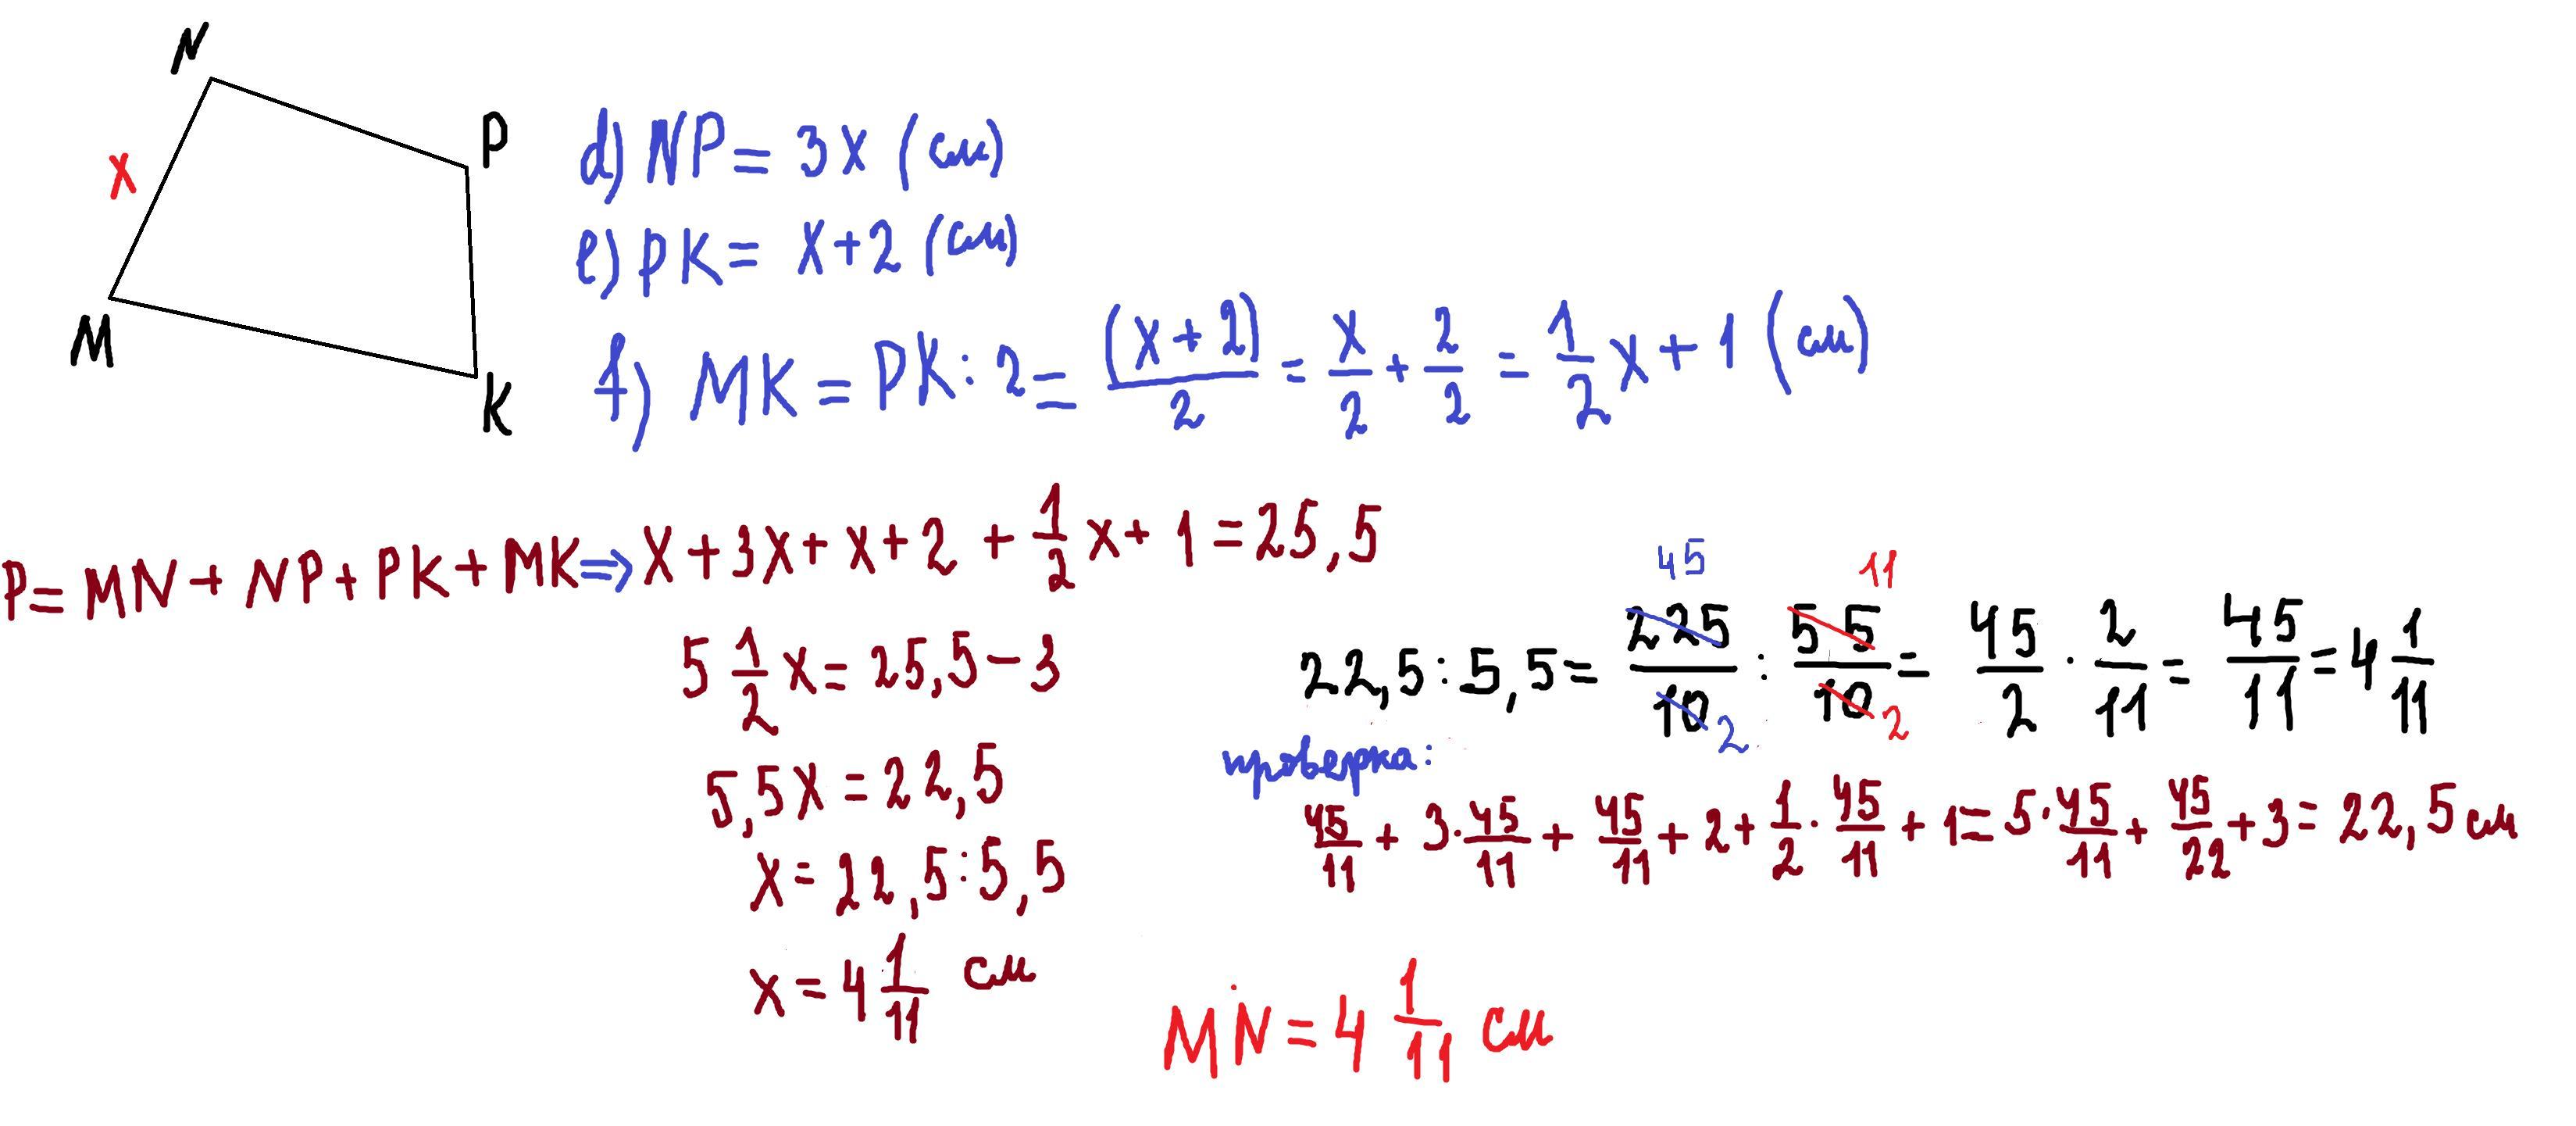 N
P
x
M
K
d) NP = 3x (см)
e) PK = x+2 (см)
f) MK = PK : 2 = (x+2)/2 = x/2 + 2/2 = 1/2 x + 1 (см)
P = MN + NP + PK + MK ⇒ x + 3x + x + 2 + 1/2 x + 1 = 25,5
5 1/2 x = 25,5 − 3
5,5x = 22,5
x = 22,5 : 5,5
x = 4 1/11 см
45 11
22,5 : 5,5 = 225/10 : 55/10 = 45/2 · 2/11 = 45/11 = 4 1/11
2 2
проверка:
45/11 + 3·45/11 + 45/11 + 2 + 1/2 · 45/11 + 1 = 5·45/11 + 45/22 + 3 = 22,5 см
MN = 4 1/11 см